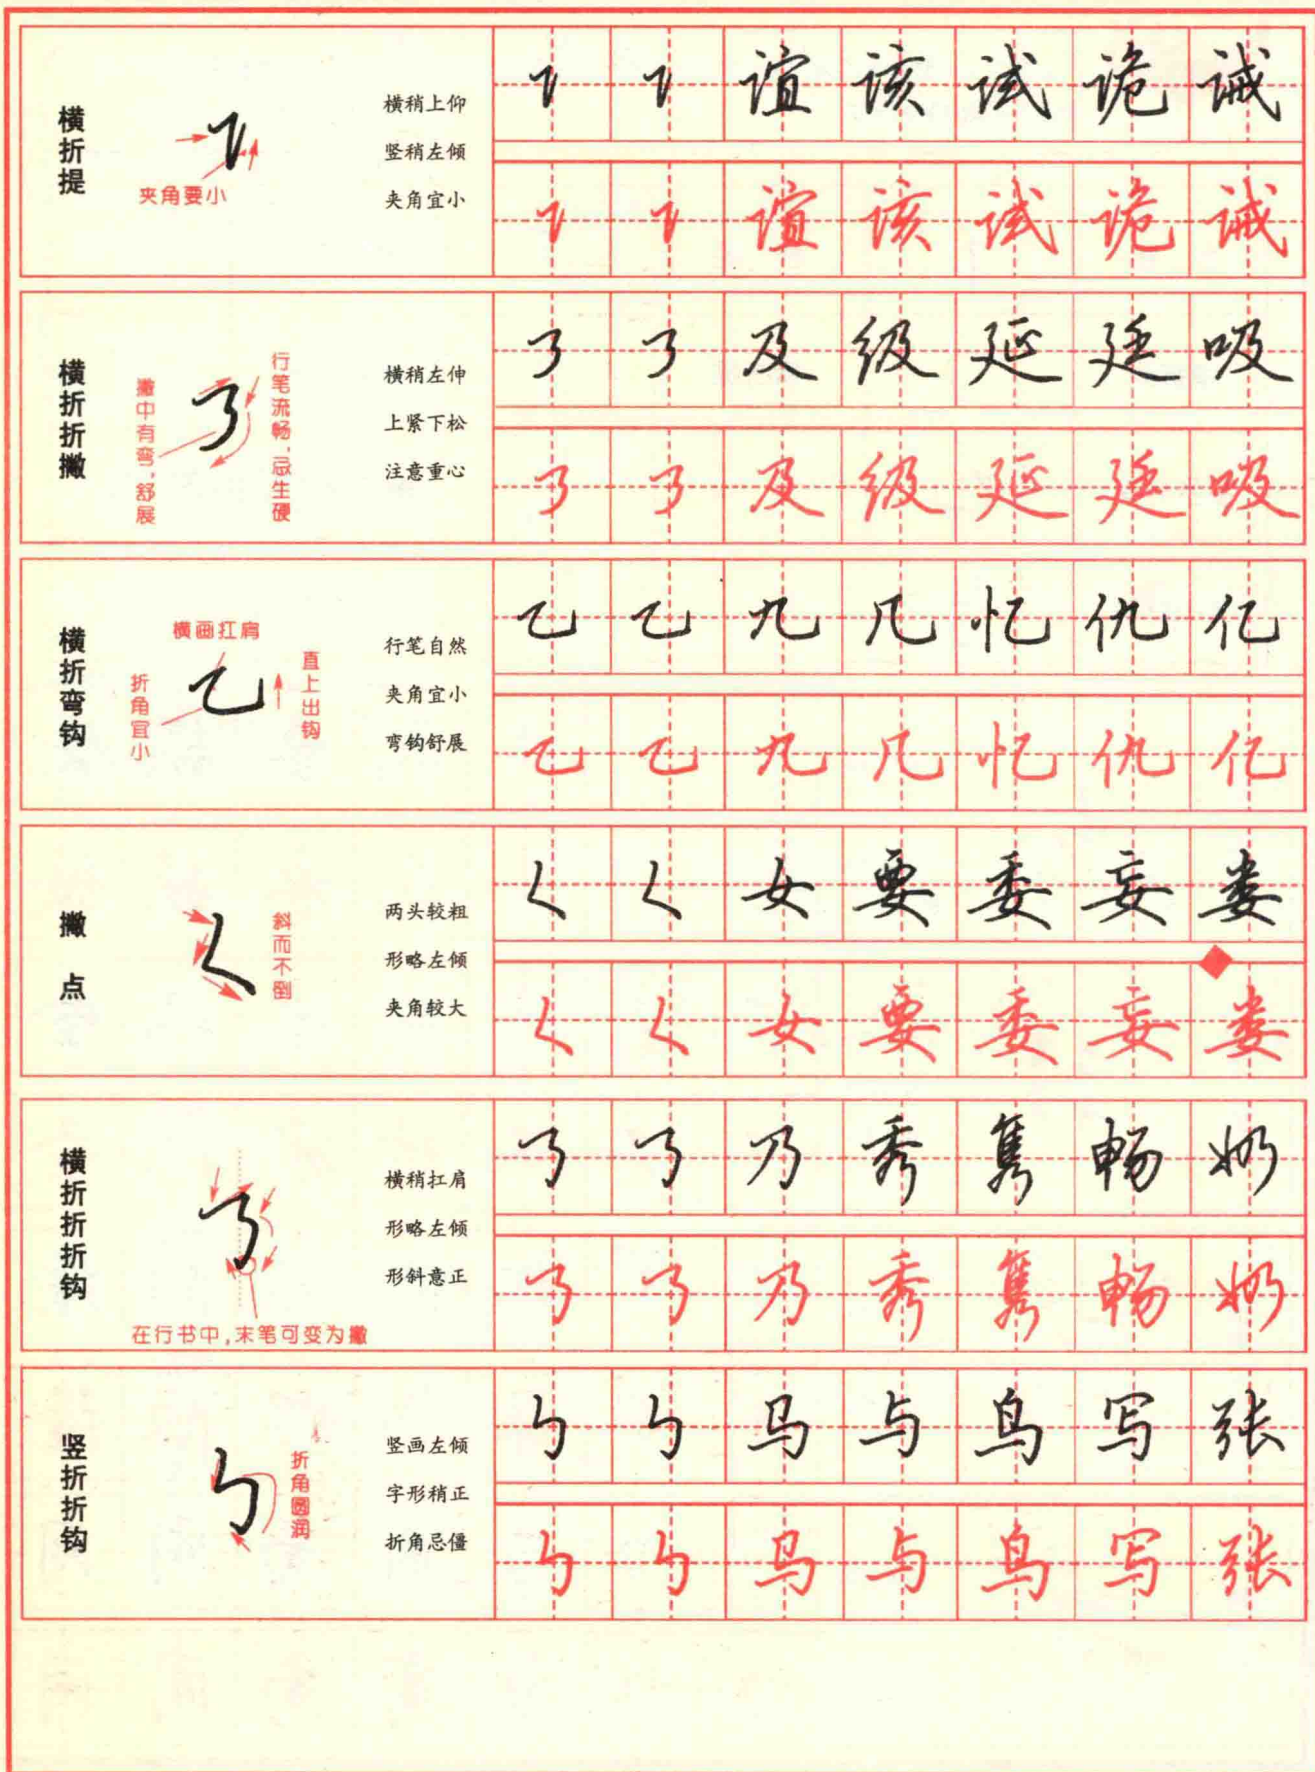 横折提
夹角要小
横稍上仰
竖稍左倾
夹角宜小
谊 该 试 诡 诫
谊 该 试 诡 诫
横折折撇
撇中有弯,舒展
行笔流畅,忌生硬
横稍左伸
上紧下松
注意重心
及 级 延 廷 吸
及 级 延 廷 吸
横折弯钩
横画扛肩
折角宜小
直上出钩
行笔自然
夹角宜小
弯钩舒展
乙 乙 九 几 忆 仇 亿
乙 乙 九 几 忆 仇 亿
撇点
斜而不倒
两头较粗
形略左倾
夹角较大
女 要 委 妄 娄
女 要 委 妄 娄
横折折折钩
在行书中,末笔可变为撇
横稍扛肩
形略左倾
形斜意正
乃 秀 隽 畅 奶
乃 秀 隽 畅 奶
竖折折钩
折角圆润
竖画左倾
字形稍正
折角忌僵
马 与 鸟 写 张
马 与 鸟 写 张